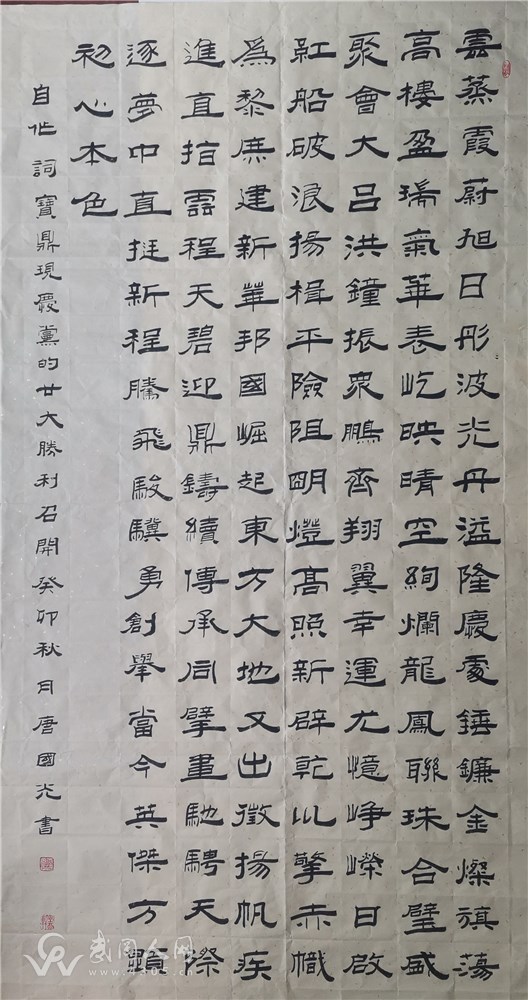 雲蒸霞蔚旭日彤波光丹溢隆慶處錘鐮金燦旗蕩
高樓盈瑞氣華表屹映晴空絢爛龍鳳聯珠合璧盛
聚會大呂洪鐘振衆鵬齊翔翼幸運尤憶崢嶸日啟
紅船破浪揚楫平險阻明燈高照新辟乾以擎赤幟
爲黎庶建新華邦國崛起東方大地又出徵揚帆疾
進直指雲程天碧迎鼎鑄續傳承同擘畫馳騁天際
逐夢中直挺新程騰飛駿驥勇創舉當今英傑方顯
初心本色
自作詞寶鼎現慶黨的廿大勝利召開癸卯秋月唐國光書
武岡人网
4305.cn